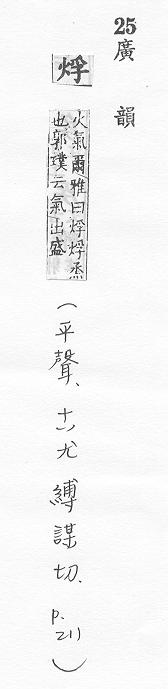 25
廣韻
烰
火氣爾雅曰烰烰烝
也郭璞云氣出盛
(平聲、十八尤 縛謀切. p.211)